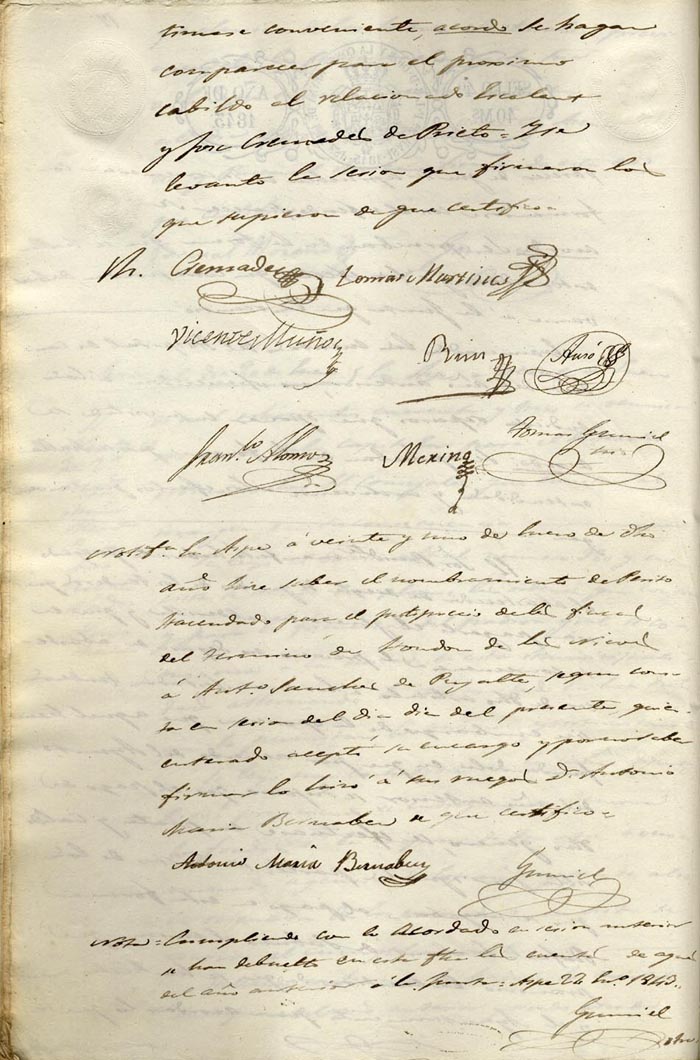 timase conveniente, acordo se hagan
comparecer para el proximo
cabildo el relacionado
y Jose Cremades de Prieto = Y se
levanto la sesion que firmaron los
que supieron de que certifico =
Cremades Tomas Martinez
Vicente Muñoz
Auso
Franco Alonso Merino Tomas Gumiel
Notifon En Aspe á veinte y uno de Enero de dho
año hice saber el nombramiento de Perito
hacendado para el justiprecio de las fincas
del termino de Hondon de las Nieves
á Anto Sanchez de Puzalte, segun cons-
ta en sesion del dia diez del presente quien
enterado acepto su encargo y por no saber
firmar lo hizo á sus ruegos Dn Antonio
Maria Bernabeu de que certifico =
Antonio Maria Bernabeu Gumiel
Nota = Cumpliendo con lo acordado en sesion anterior
se han debuelto en esta fha las cuentas de agua
del año anterior á la Junta = Aspe 22 Eno 1843.
Gumiel